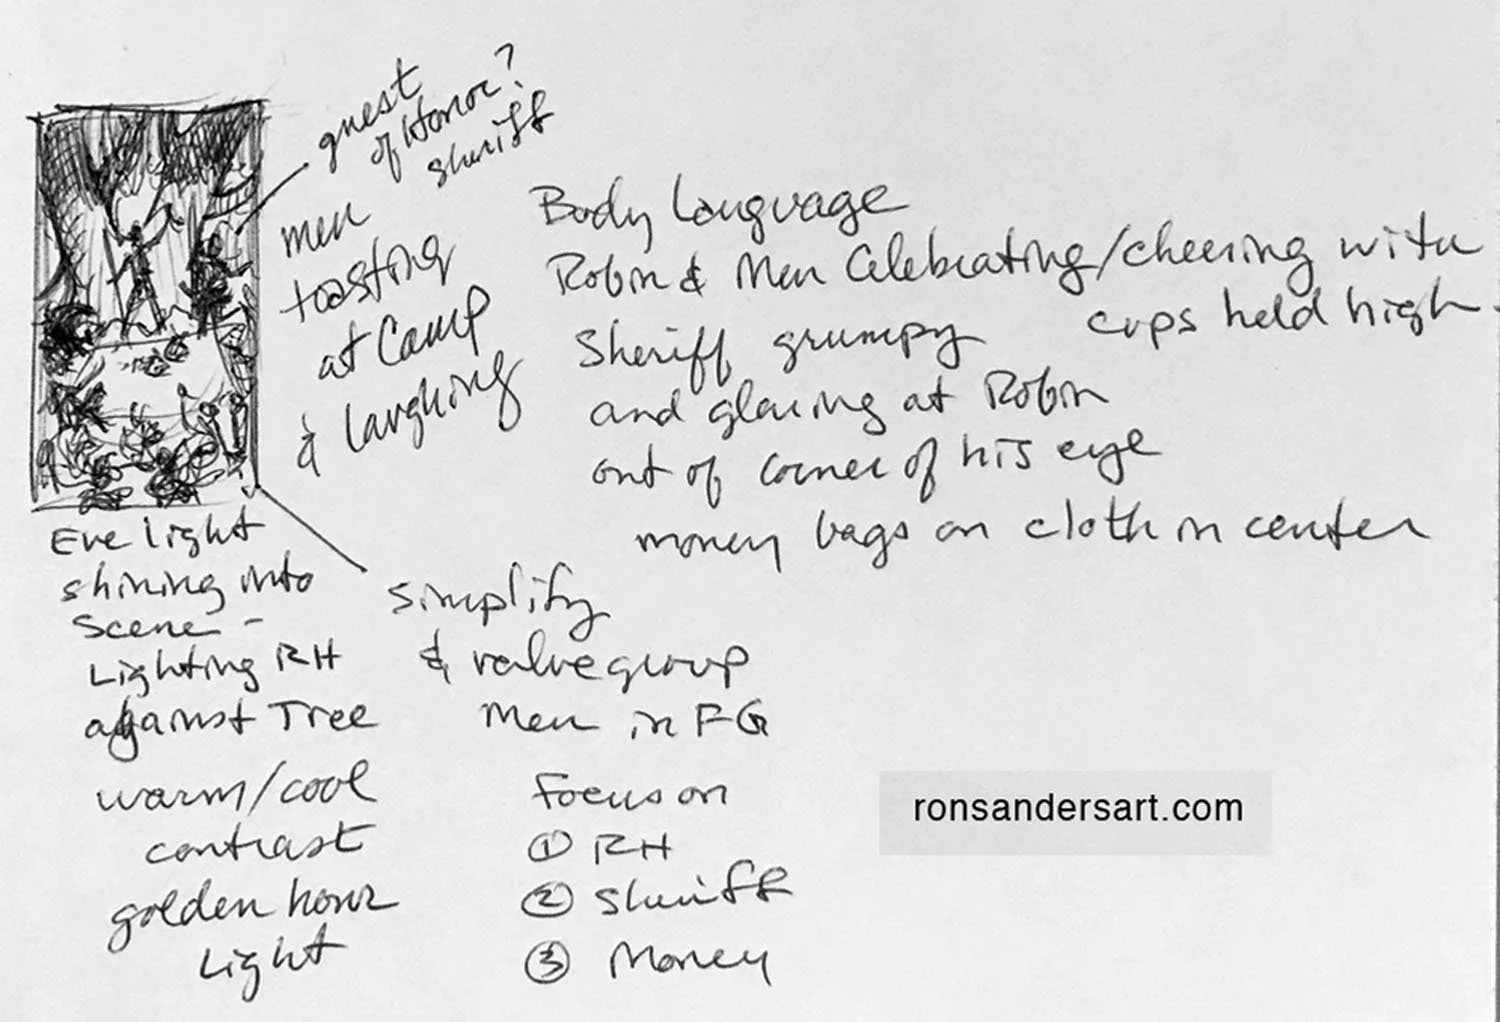 guest
of Honor?
sheriff
men
toasting
at Camp
& laughing
Body Language
Robin & Men Celebrating/cheering with
cups held high
Sheriff grumpy
and glaring at Robin
out of corner of his eye
money bags on cloth in center
Eve light
shining into
scene -
Lighting RH
against Tree
warm/cool
contrast
golden hour
Light
simplify
& value group
Men in FG
Focus on
① RH
② Sheriff
③ Money
ronsandersart.com